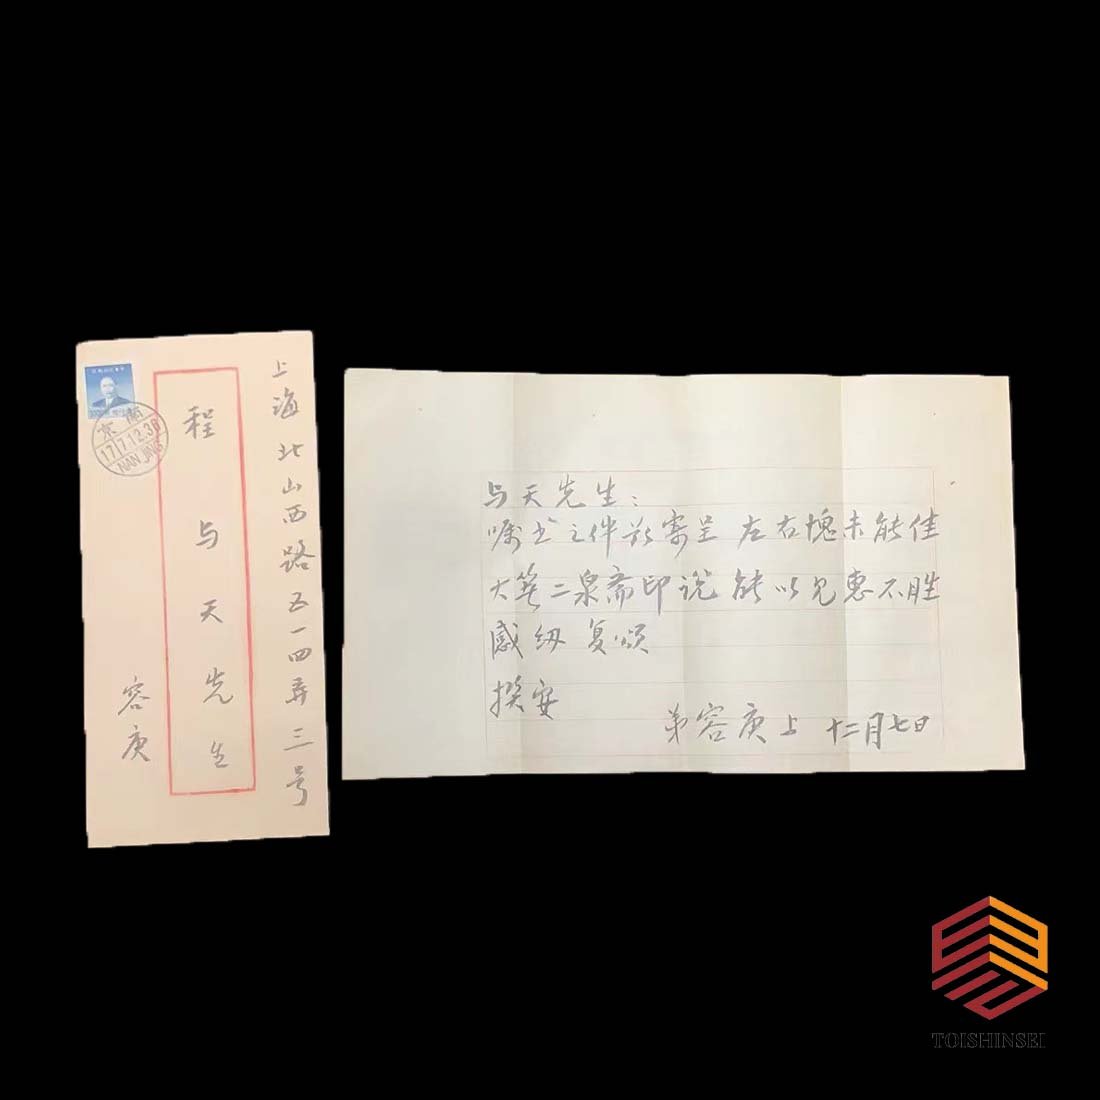 上海北山西路五一四弄三号
程与天先生
容庚
南京
17.12.36
NANJING
与天先生：
嘱书之件兹寄呈 左右愧未能佳
大筆二泉斋印说能以见惠不胜
感纫 复颂
撰安
弟容庚上 十二月七日
TOISHINSEI